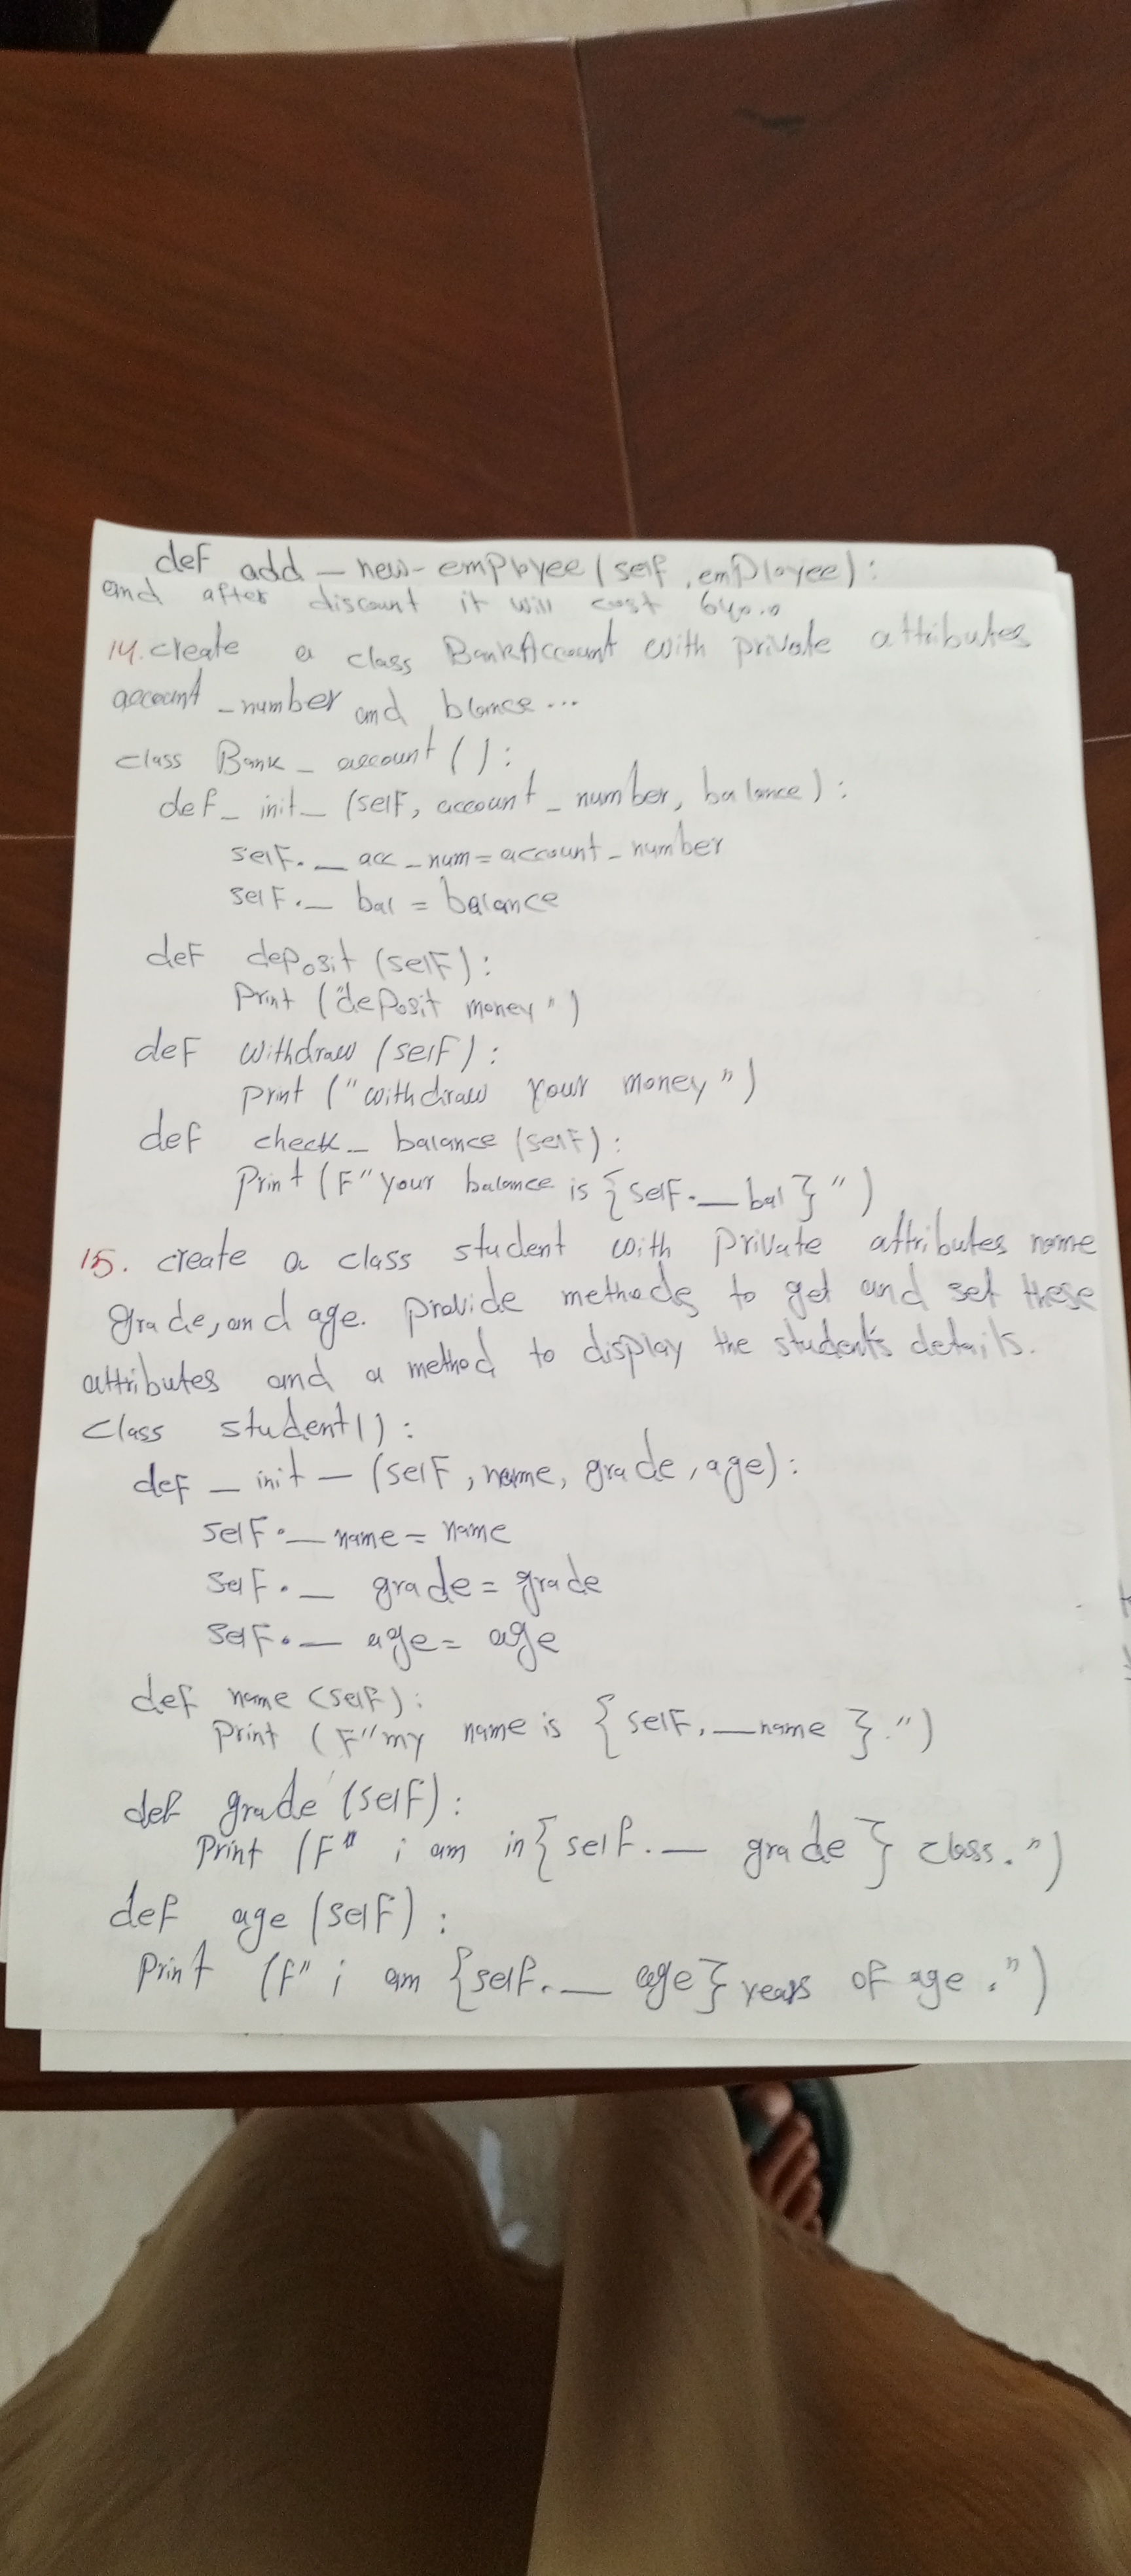 def add_new-employee(self, employee):
and after discount it will cost 640.0
14. create a class BankAccount with private attributes
account_number and blance...
class Bank_account():
def_init_(self, account_number, balance):
self.__acc_num = account_number
self.__bal = balance
def deposit (self):
Print ("deposit money")
def withdraw (self):
Print ("withdraw your money")
def check_balance (self):
Print (F"your balance is {self.__bal}")
15. create a class student with private attributes name
grade, and age. provide methods to get and set these
attributes and a method to display the student's details.
class student():
def _init_ (self, name, grade, age):
self.__name = name
self.__grade = grade
self.__age = age
def name (self):
Print (F"my name is {self.__name}.")
def grade (self):
Print (F" i am in {self.__grade} class.")
def age (self):
Print (F" i am {self.__age} years of age.")